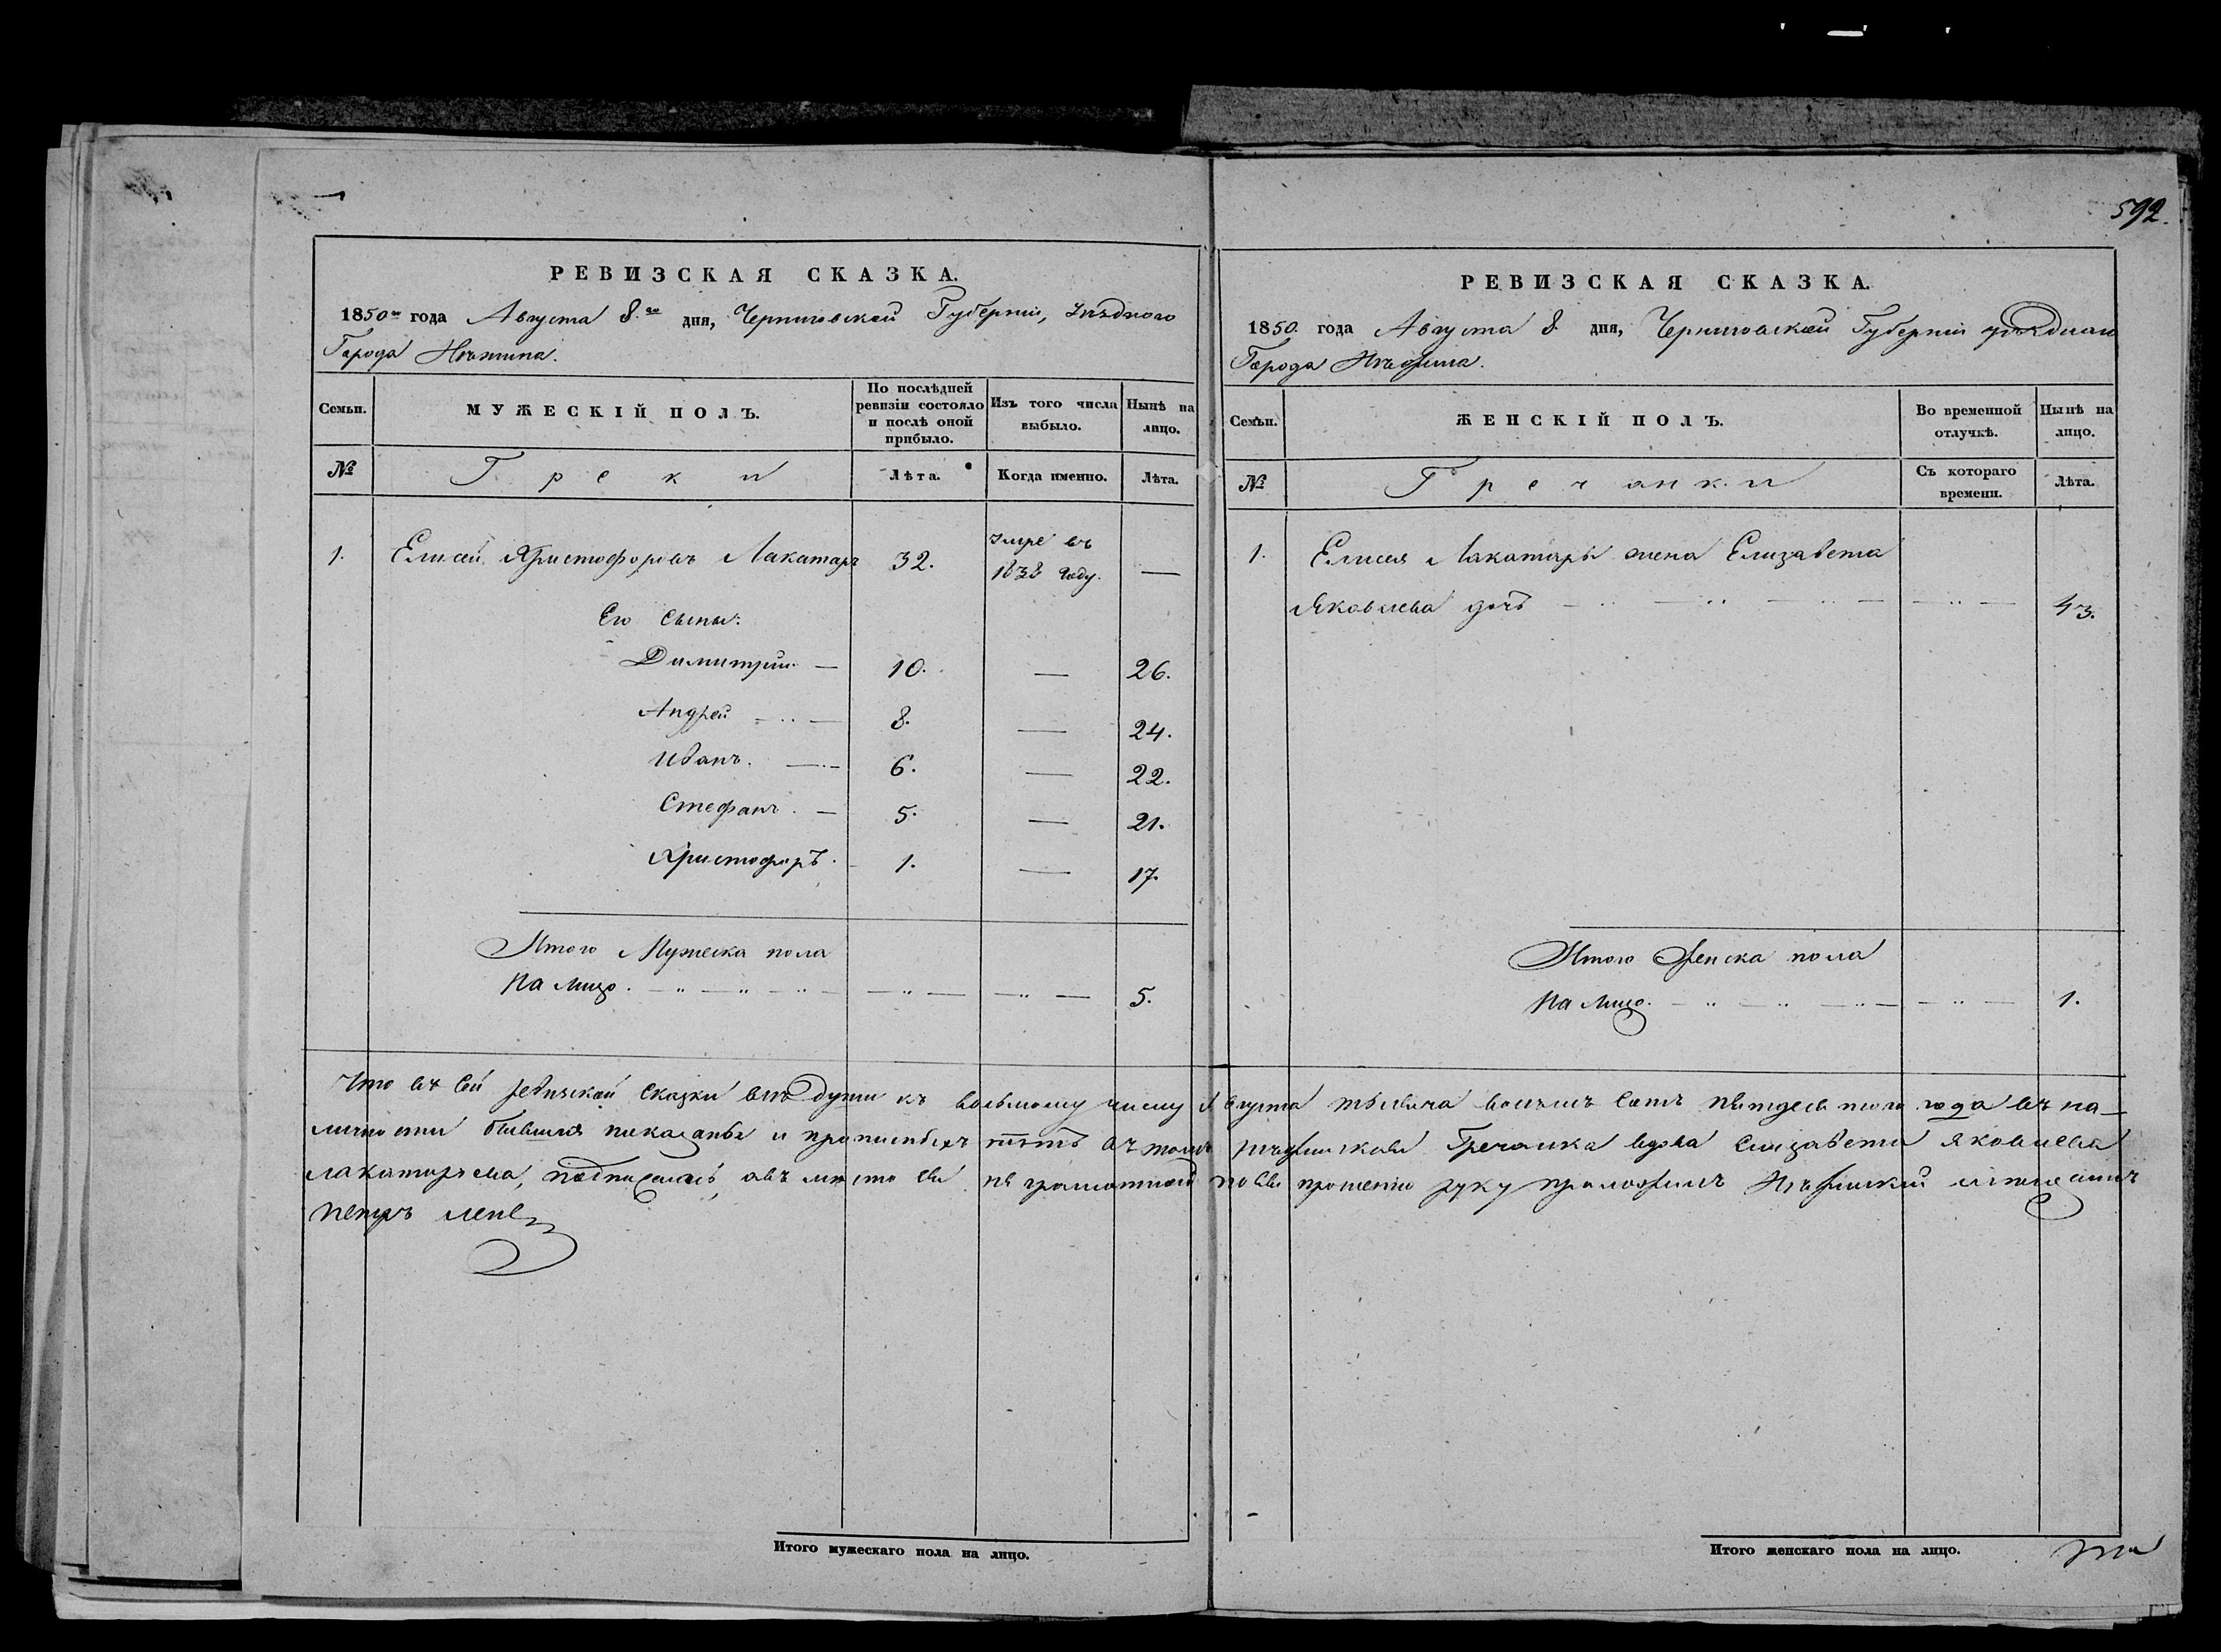 592.
РЕВИЗСКАЯ СКАЗКА.
1850го года Августа 8.го дня, Черниговской Губерніи, Уѣзднаго
Города Нѣжина.
Семьи.
МУЖЕСКІЙ ПОЛЪ.
По послѣдней ревизіи состояло и послѣ оной прибыло.
Изъ того числа выбыло.
Нынѣ на лицо.
№
Греки
Лѣта.
Когда именно.
Лѣта.
1. Елисей Христофоровъ Лакатаръ 32. умре въ 1838 году. —
Его сыны:
Димитрій — 10. — 26.
Андрей — 8. — 24.
Иванъ. — 6. — 22.
Стефанъ. — 5. — 21.
Христофоръ. — 1. — 17.
Итого Мужеска пола
на лицо. 5.
РЕВИЗСКАЯ СКАЗКА.
1850. года Августа 8. дня, Черниговской Губерніи уѣзднаго
Города Нѣжина.
Семьи.
ЖЕНСКІЙ ПОЛЪ.
Во временной отлучкѣ.
Нынѣ на лицо.
№
Гречанки
Съ котораго времени.
Лѣта.
1. Елисея Лакатаръ жена Елизавета
Яковлева дочь 43.
Итого Женска пола
на лицо. 1.
Что въ сей ревизской сказки всѣ души къ восьмому числу Августа тысяча восемь сотъ пятдесятого года въ на-
личности бывшия показаны и прописныхъ нѣтъ въ томъ нѣжинская Гречанка вдова Елизавета Яковлева
Лакатарева, подписалась, а въ мѣсто ея не грамотной по ея прошенію руку приложилъ Нѣжинскій мещанинъ
Петръ
Итого мужескаго пола на лицо.
Итого женскаго пола на лицо.